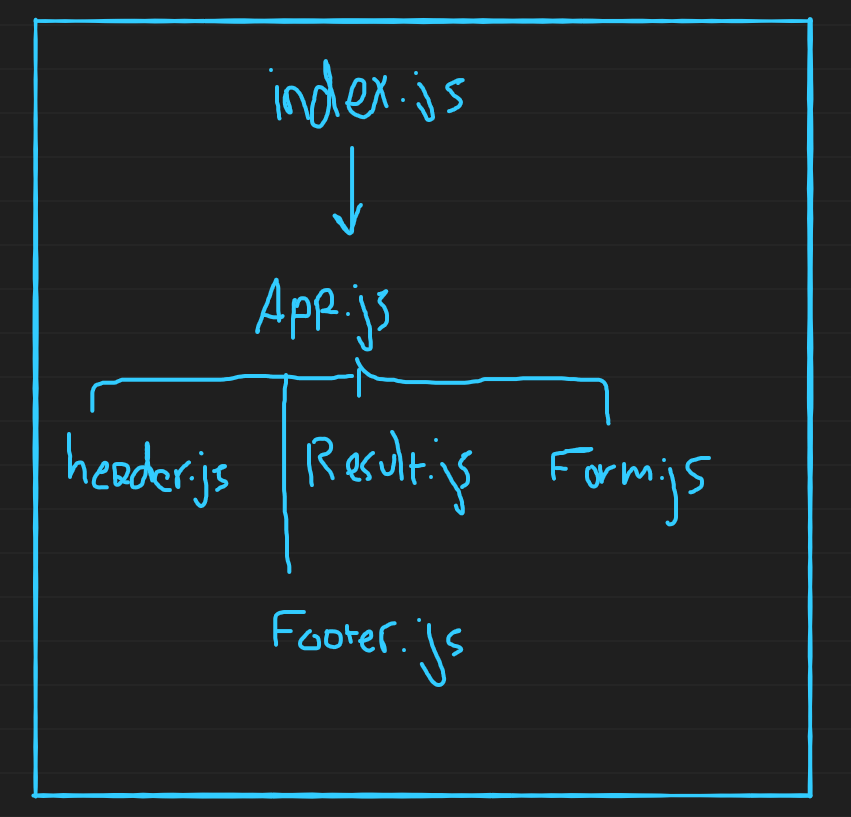 index.js
App.js
header.js Result.js Form.js
Footer.js